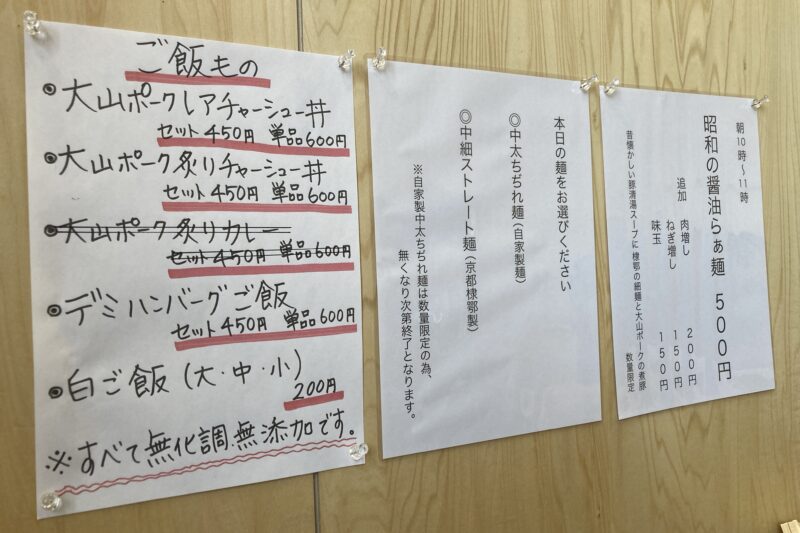 ご飯もの
大山ポークレアチャーシュー丼
セット450円 単品600円
大山ポーク炙りチャーシュー丼
セット450円 単品600円
大山ポーク炙りカレー
セット450円 単品600円
デミハンバーグご飯
セット450円 単品600円
白ご飯(大・中・小)
200円
※すべて無化調.無添加です。
本日の麺をお選びください
◎中太ちぢれ麺(自家製麺)
◎中細ストレート麺(京都棣鄂製)
※自家製中太ちぢれ麺は数量限定の為、
無くなり次第終了となります。
朝10時〜11時
昭和の醤油らぁ麺 500円
追加 肉増し 200円
ねぎ増し 150円
味玉 150円
昔懐かしい豚清湯スープに 棣鄂の細麺と大山ポークの煮豚
数量限定